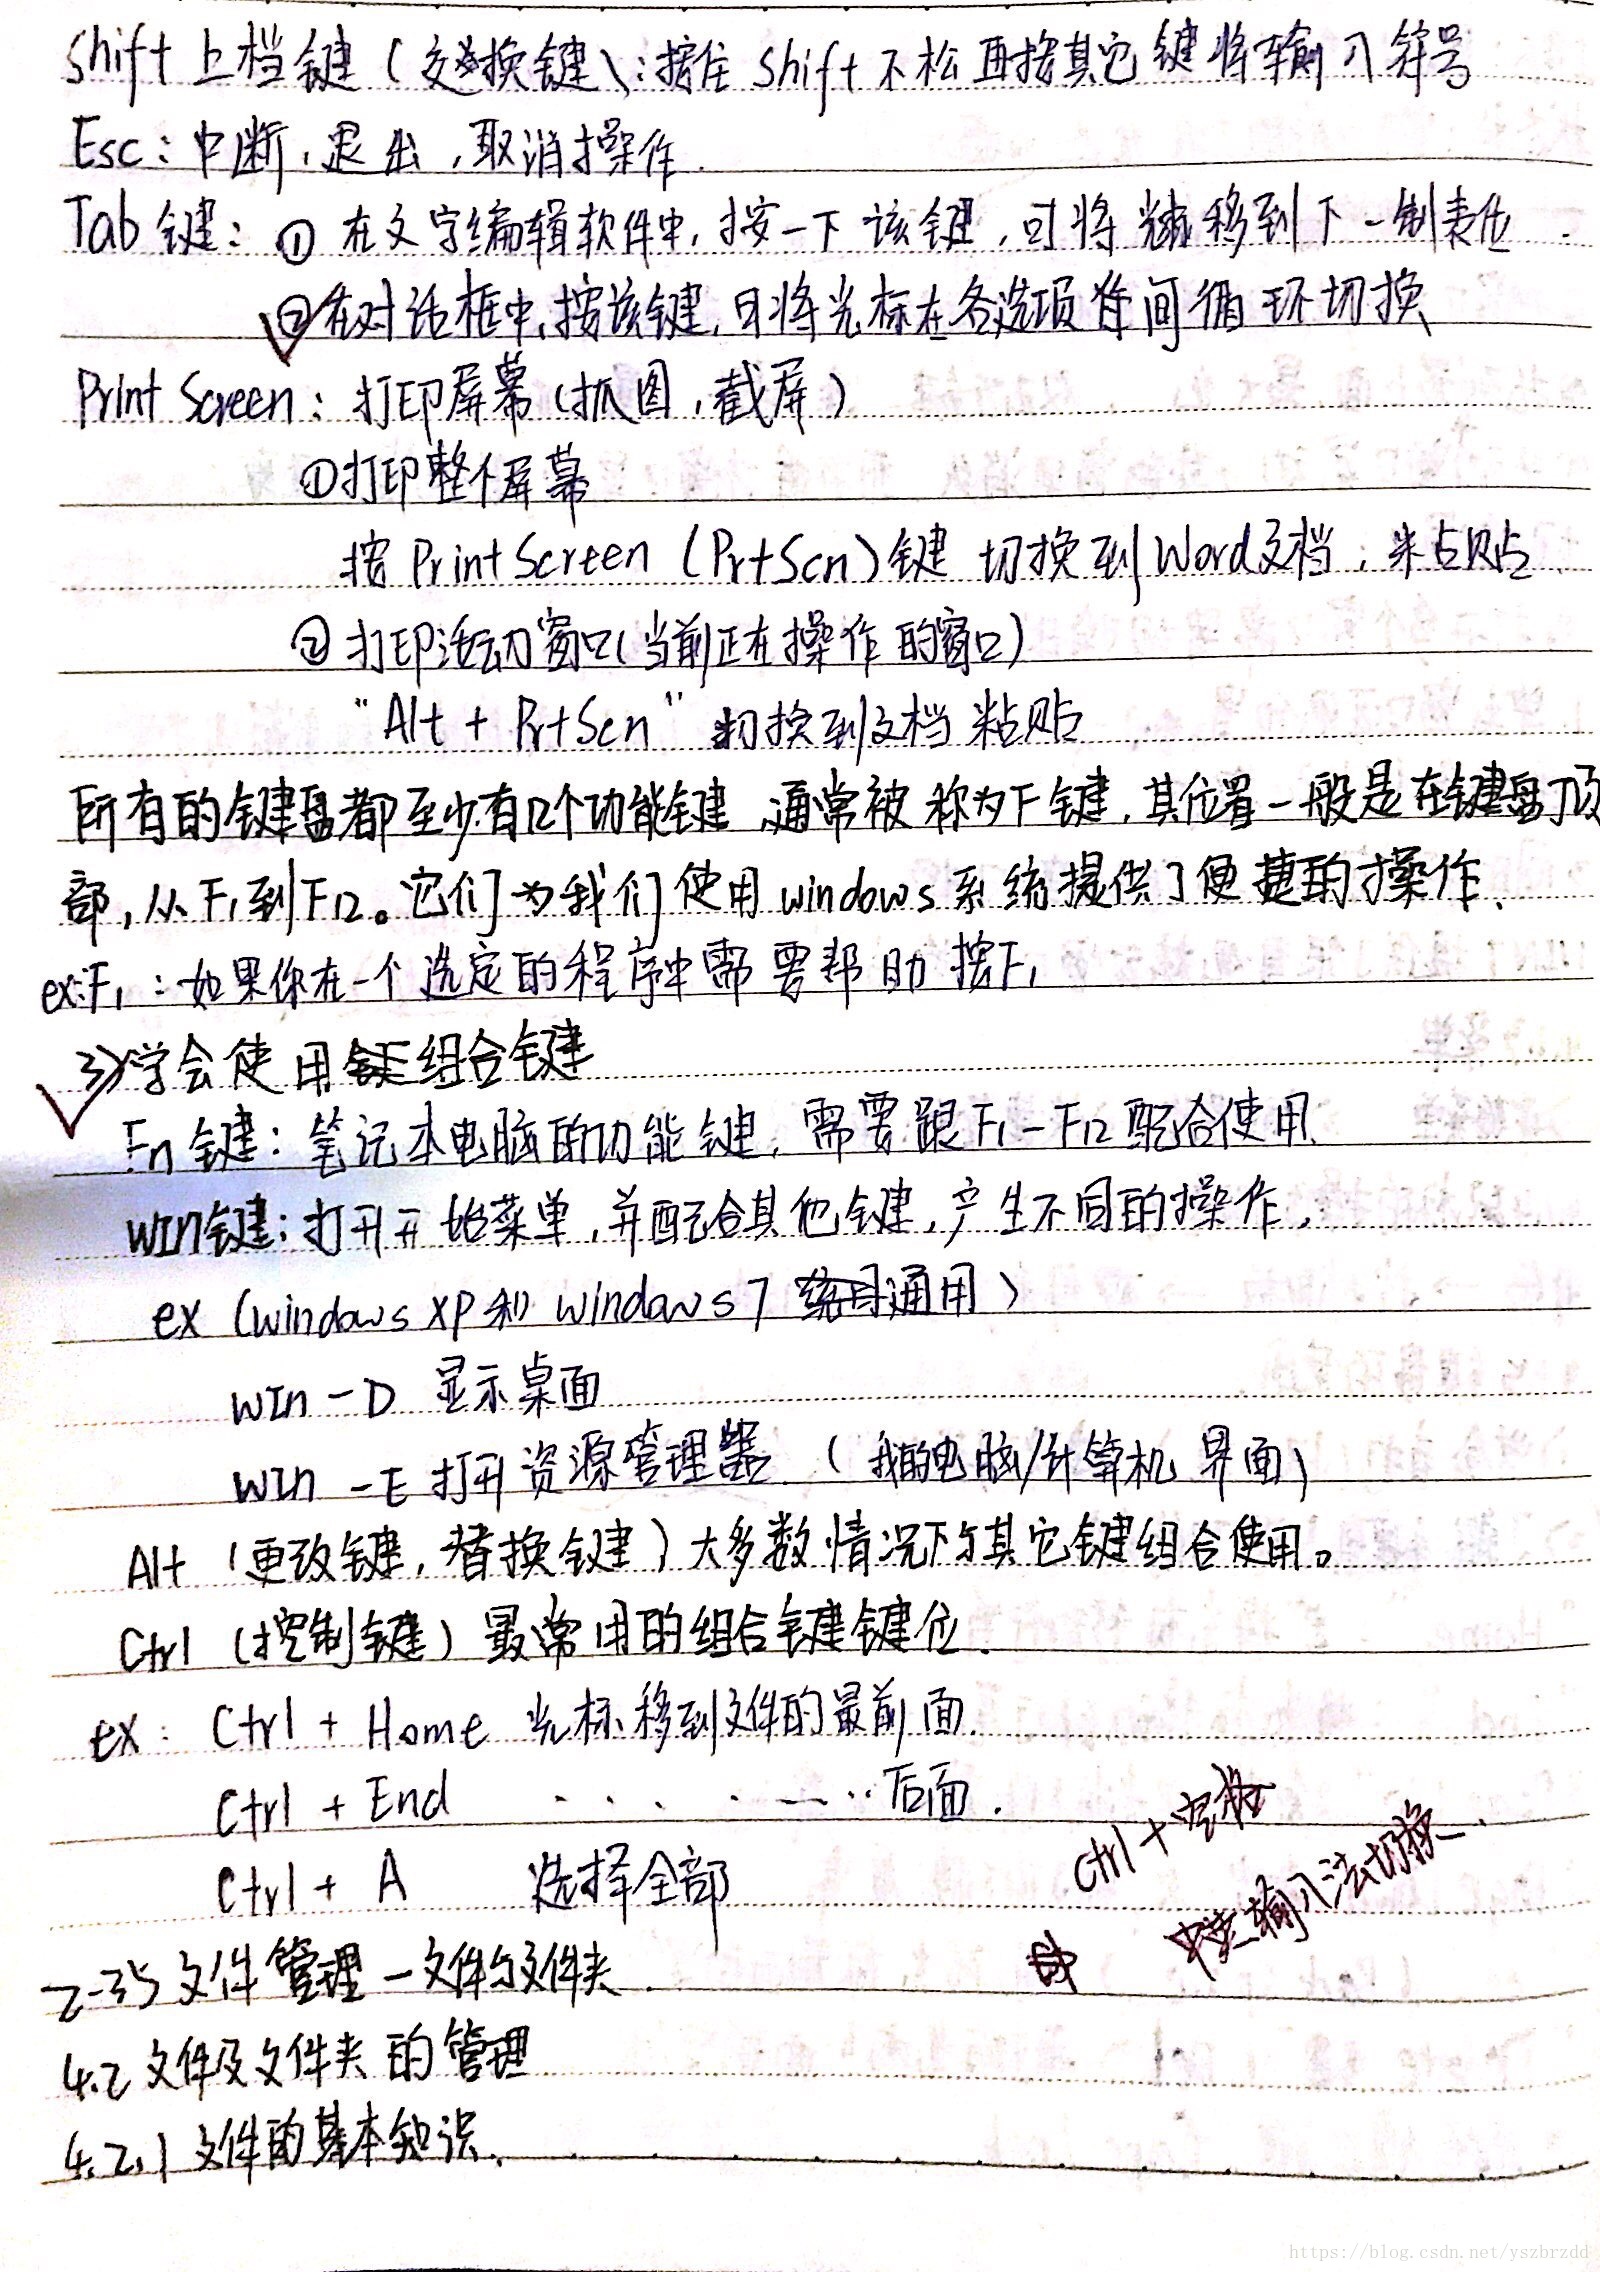 Shift 上档键（交换键）：按住 Shift 不松再按其它键将输入符号
Esc：中断，退出，取消操作.
Tab 键：① 在文字编辑软件中，按一下该键，可将光标移到下一制表位.
②在对话框中，按该键，可将光标在各选项之间循环切换
Print Screen：打印屏幕（抓图，截屏）
①打印整个屏幕
按 Print Screen（PrtScn）键 切换到Word文档，粘贴
② 打印活动窗口（当前正在操作的窗口）
“Alt + PrtScn” 切换到文档 粘贴
所有的键盘都至少有12个功能键，通常被称为F键，其位置一般是在键盘顶
部，从F1到F12。它们为我们使用windows系统提供了便捷的操作.
ex:F1：如果你在一个选定的程序中需要帮助 按F1
3）学会使用组合键
Fn 键：笔记本电脑的功能键，需要跟F1-F12配合使用.
WIn键：打开开始菜单，并配合其他键，产生不同的操作，
ex（windows XP 和 windows7 通用）
WIn -D 显示桌面
WIn -E 打开资源管理器（我的电脑/计算机界面）
Alt（更改键，替换键）大多数情况下与其它键组合使用。
Ctrl（控制键）最常用的组合键键位.
ex：Ctrl + Home 光标移到文件的最前面.
Ctrl + End ‥‥后面.
Ctrl + A 选择全部
Ctrl + 空格
中英输入法切换.
2-35 文件管理 - 文件与文件夹.
4.2 文件及文件夹的管理
4.2.1 文件的基本知识.
https://blog.csdn.net/yszbrzdd